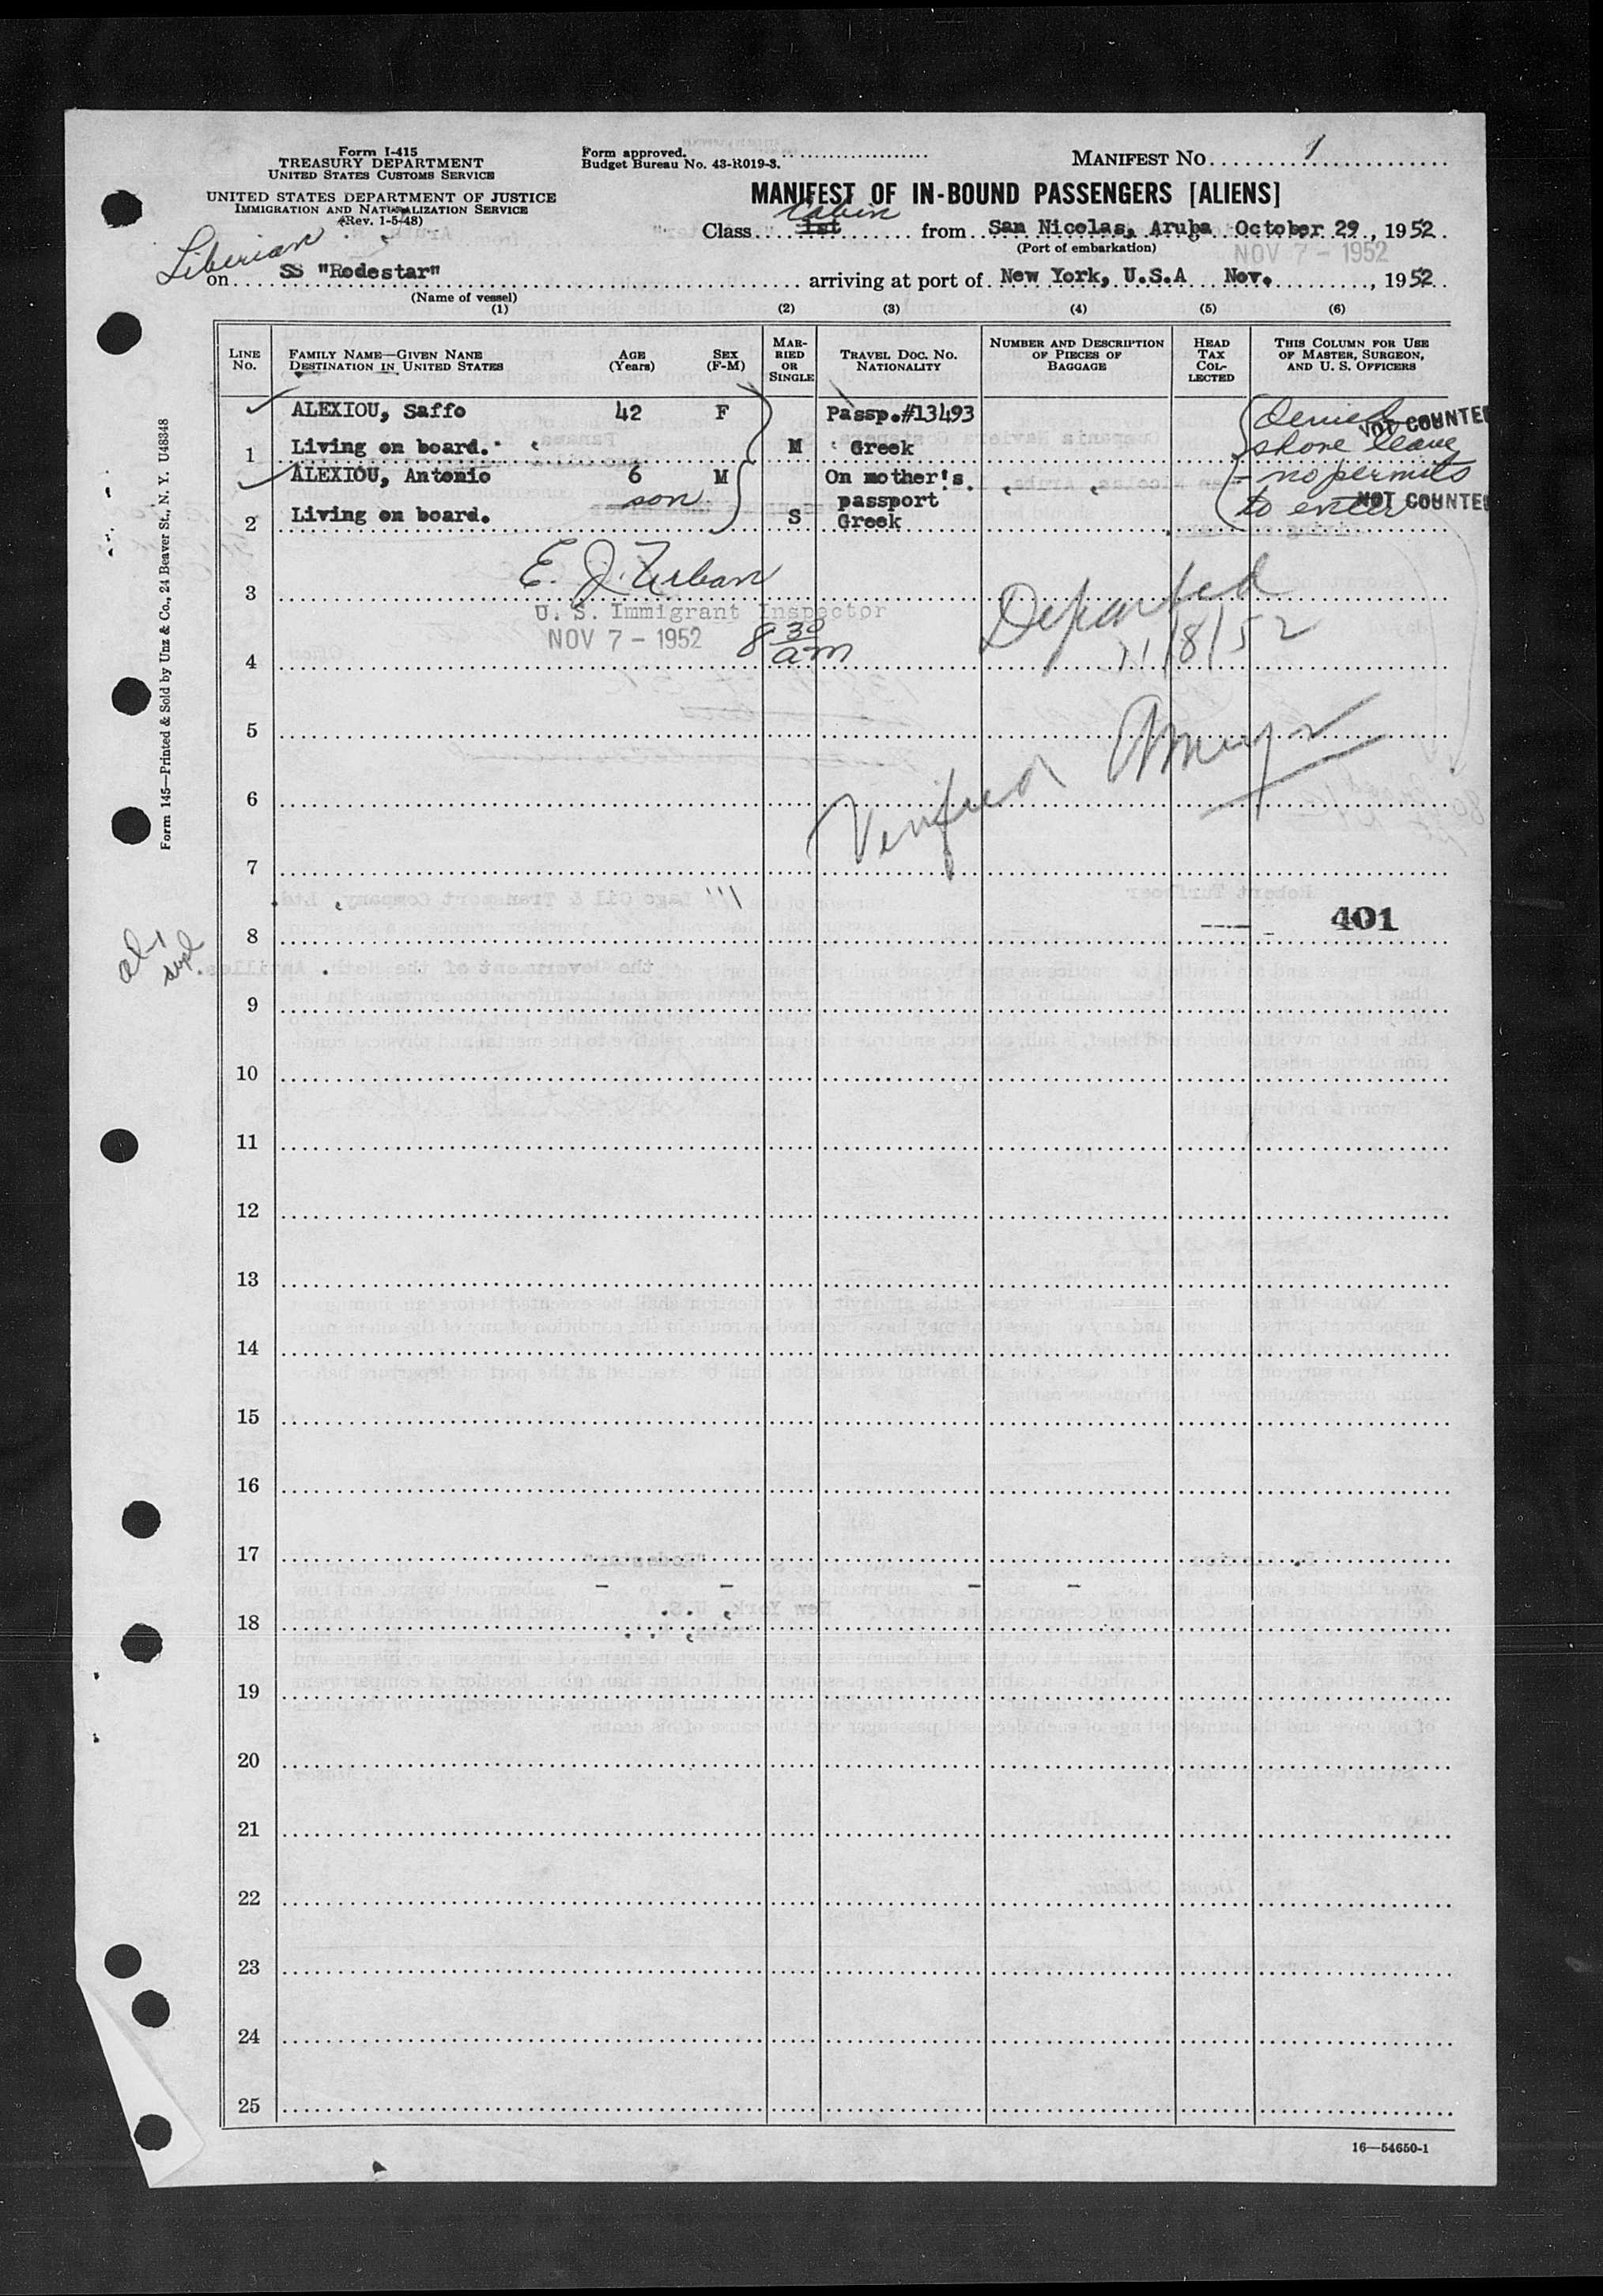 Form I-415
TREASURY DEPARTMENT
UNITED STATES CUSTOMS SERVICE
UNITED STATES DEPARTMENT OF JUSTICE
IMMIGRATION AND NATURALIZATION SERVICE
(Rev. 1-5-48)
Form approved.
Budget Bureau No. 43-R019-3.
MANIFEST NO. 1
MANIFEST OF IN-BOUND PASSENGERS [ALIENS]
Cabin
Class 1st from San Nicolas, Aruba October 29, 1952
(Port of embarkation)
NOV 7 - 1952
Liberian
on SS "Rodestar" arriving at port of New York, U.S.A Nov. , 1952
(Name of vessel)
(1) (2) (3) (4) (5) (6)
LINE NO.
FAMILY NAME—GIVEN NANE
DESTINATION IN UNITED STATES
AGE (Years)
SEX (F-M)
MARRIED OR SINGLE
TRAVEL DOC. NO. NATIONALITY
NUMBER AND DESCRIPTION OF PIECES OF BAGGAGE
HEAD TAX COLLECTED
THIS COLUMN FOR USE OF MASTER, SURGEON, AND U. S. OFFICERS
ALEXIOU, Saffo 42 F Passp.#13493 Denied
NOT COUNTE
1 Living on board. M Greek shore leave
ALEXIOU, Antonio 6 M On mother's - no permits
son passport to enter NOT COUNTE
2 Living on board. S Greek
E. J. Urban
3 Departed
U. S. Immigrant Inspector
NOV 7 - 1952 8 30 am 11/8/52
4
5
6
Verified
7
401
8
9
10
11
12
13
14
15
16
17
18
19
20
21
22
23
24
25
16—54650-1
Form 145—Printed & Sold by Unz & Co., 24 Beaver St., N. Y. U48348